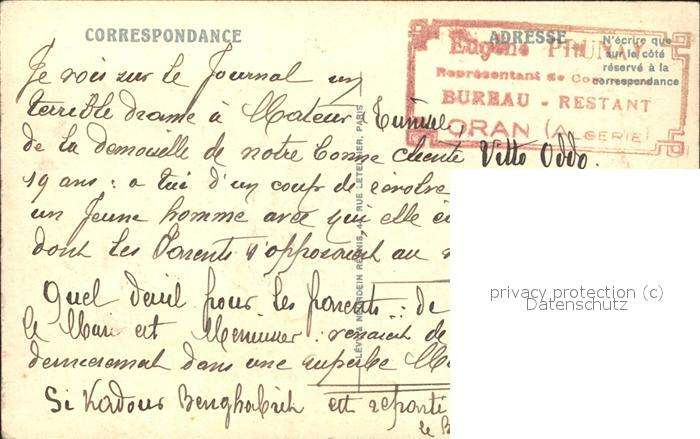 CORRESPONDANCE
ADRESSE
N'écrire que
sur le côté
réservé à la
correspondance
Eugène PRUNAY
Représentant de Commerce
BUREAU - RESTANT
ORAN (ALGERIE)
Je vois sur le Journal un
terrible drame à Mateur, Tunisie,
de la demoiselle de notre bonne cliente Vitto Oddo.
19 ans : a tué d'un coup de révolver
un Jeune homme avec qui elle
dont les Parents s'opposaient au
Quel deuil pour les parents : de
le Mari est Menuisier : venait de
dans une superbe
Si Kadour Benghabrit est reparti
le
LÉVY & NEURDEIN RÉUNIS, 44, RUE LETELLIER, PARIS
privacy protection (c)
Datenschutz